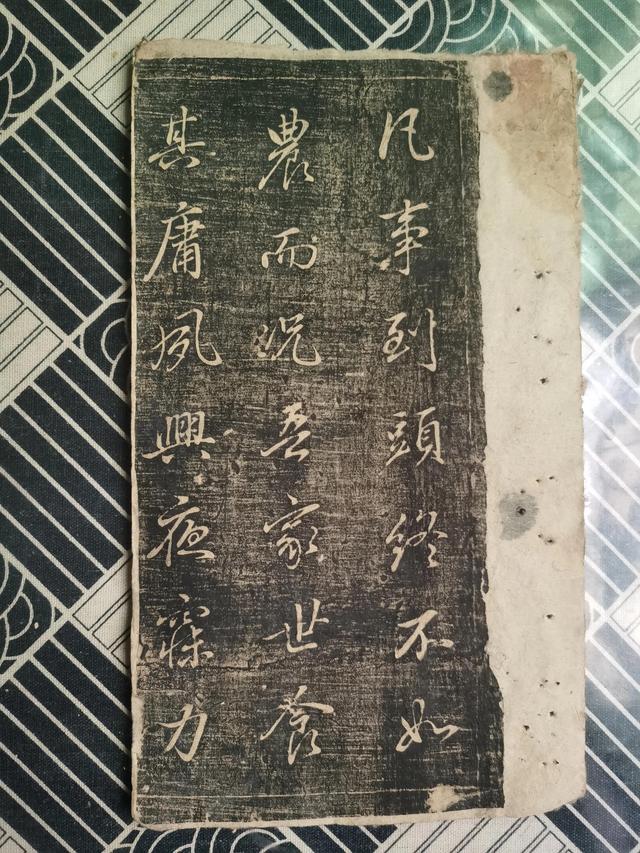 凡事到頭終不如
農而況吾家世食
其庸夙興夜寐力